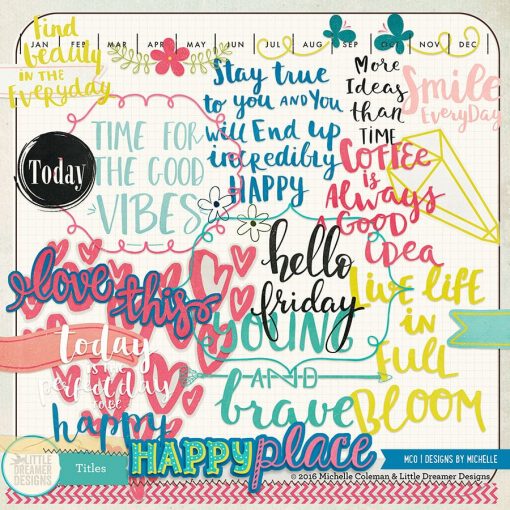 find
beauty
IN THE
Everyday
JAN FEB MAR APR MAY JUN JUL AUG SEP OCT NOV DEC
Stay true
to you AND YOU
will End up
incredibly
HAPPY
More
Ideas
than
TIME
Smile
EveryDay
TIME FOR
THE GOOD
VIBES
Today
COFFEE
is
Always
A GOOD
IDEA
hello
friday
love this
LIVE LIFE
in
FULL
BLOOM
YOUNG
AND
brave
today
is the
perfect day
to be
happy
HAPPY place
LITTLE
DREAMER
DESIGNS
Titles
MCO | DESIGNS BY MICHELLE
© 2016 Michelle Coleman & Little Dreamer Designs